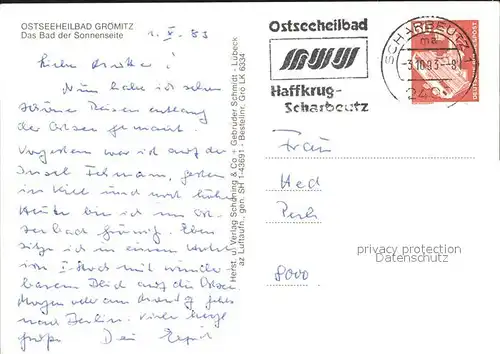 OSTSEEHEILBAD GRÖMITZ
Das Bad der Sonnenseite
1. X. 83
Liebe
Nun habe ich schon
schöne Reisen entlang
der Ostsee gemacht.
Vorgestern war ich auf der
Insel Fehmarn, gestern
in Kiel und
Heute bin ich im Ost-
seebad Grömitz. Eben
sitze ich in einem
im I. Stock mit wunder
barem Blick auf die Ostsee
Morgen oder am Dienstag gehts
nach Berlin. Viele herzl.
Grüße Dein
Herst. u. Verlag Schöning & Co + Gebrüder Schmidt · Lübeck
az Luftaufn., gen. SH 1-43691 - Bestellnr. Grö LK 6334
Ostseeheilbad
Haffkrug-
Scharbeutz
SCHARBEUTZ 1
ma
-3.10.83.-8
240
Frau
Hed
Perk
8000
privacy protection
Datenschutz